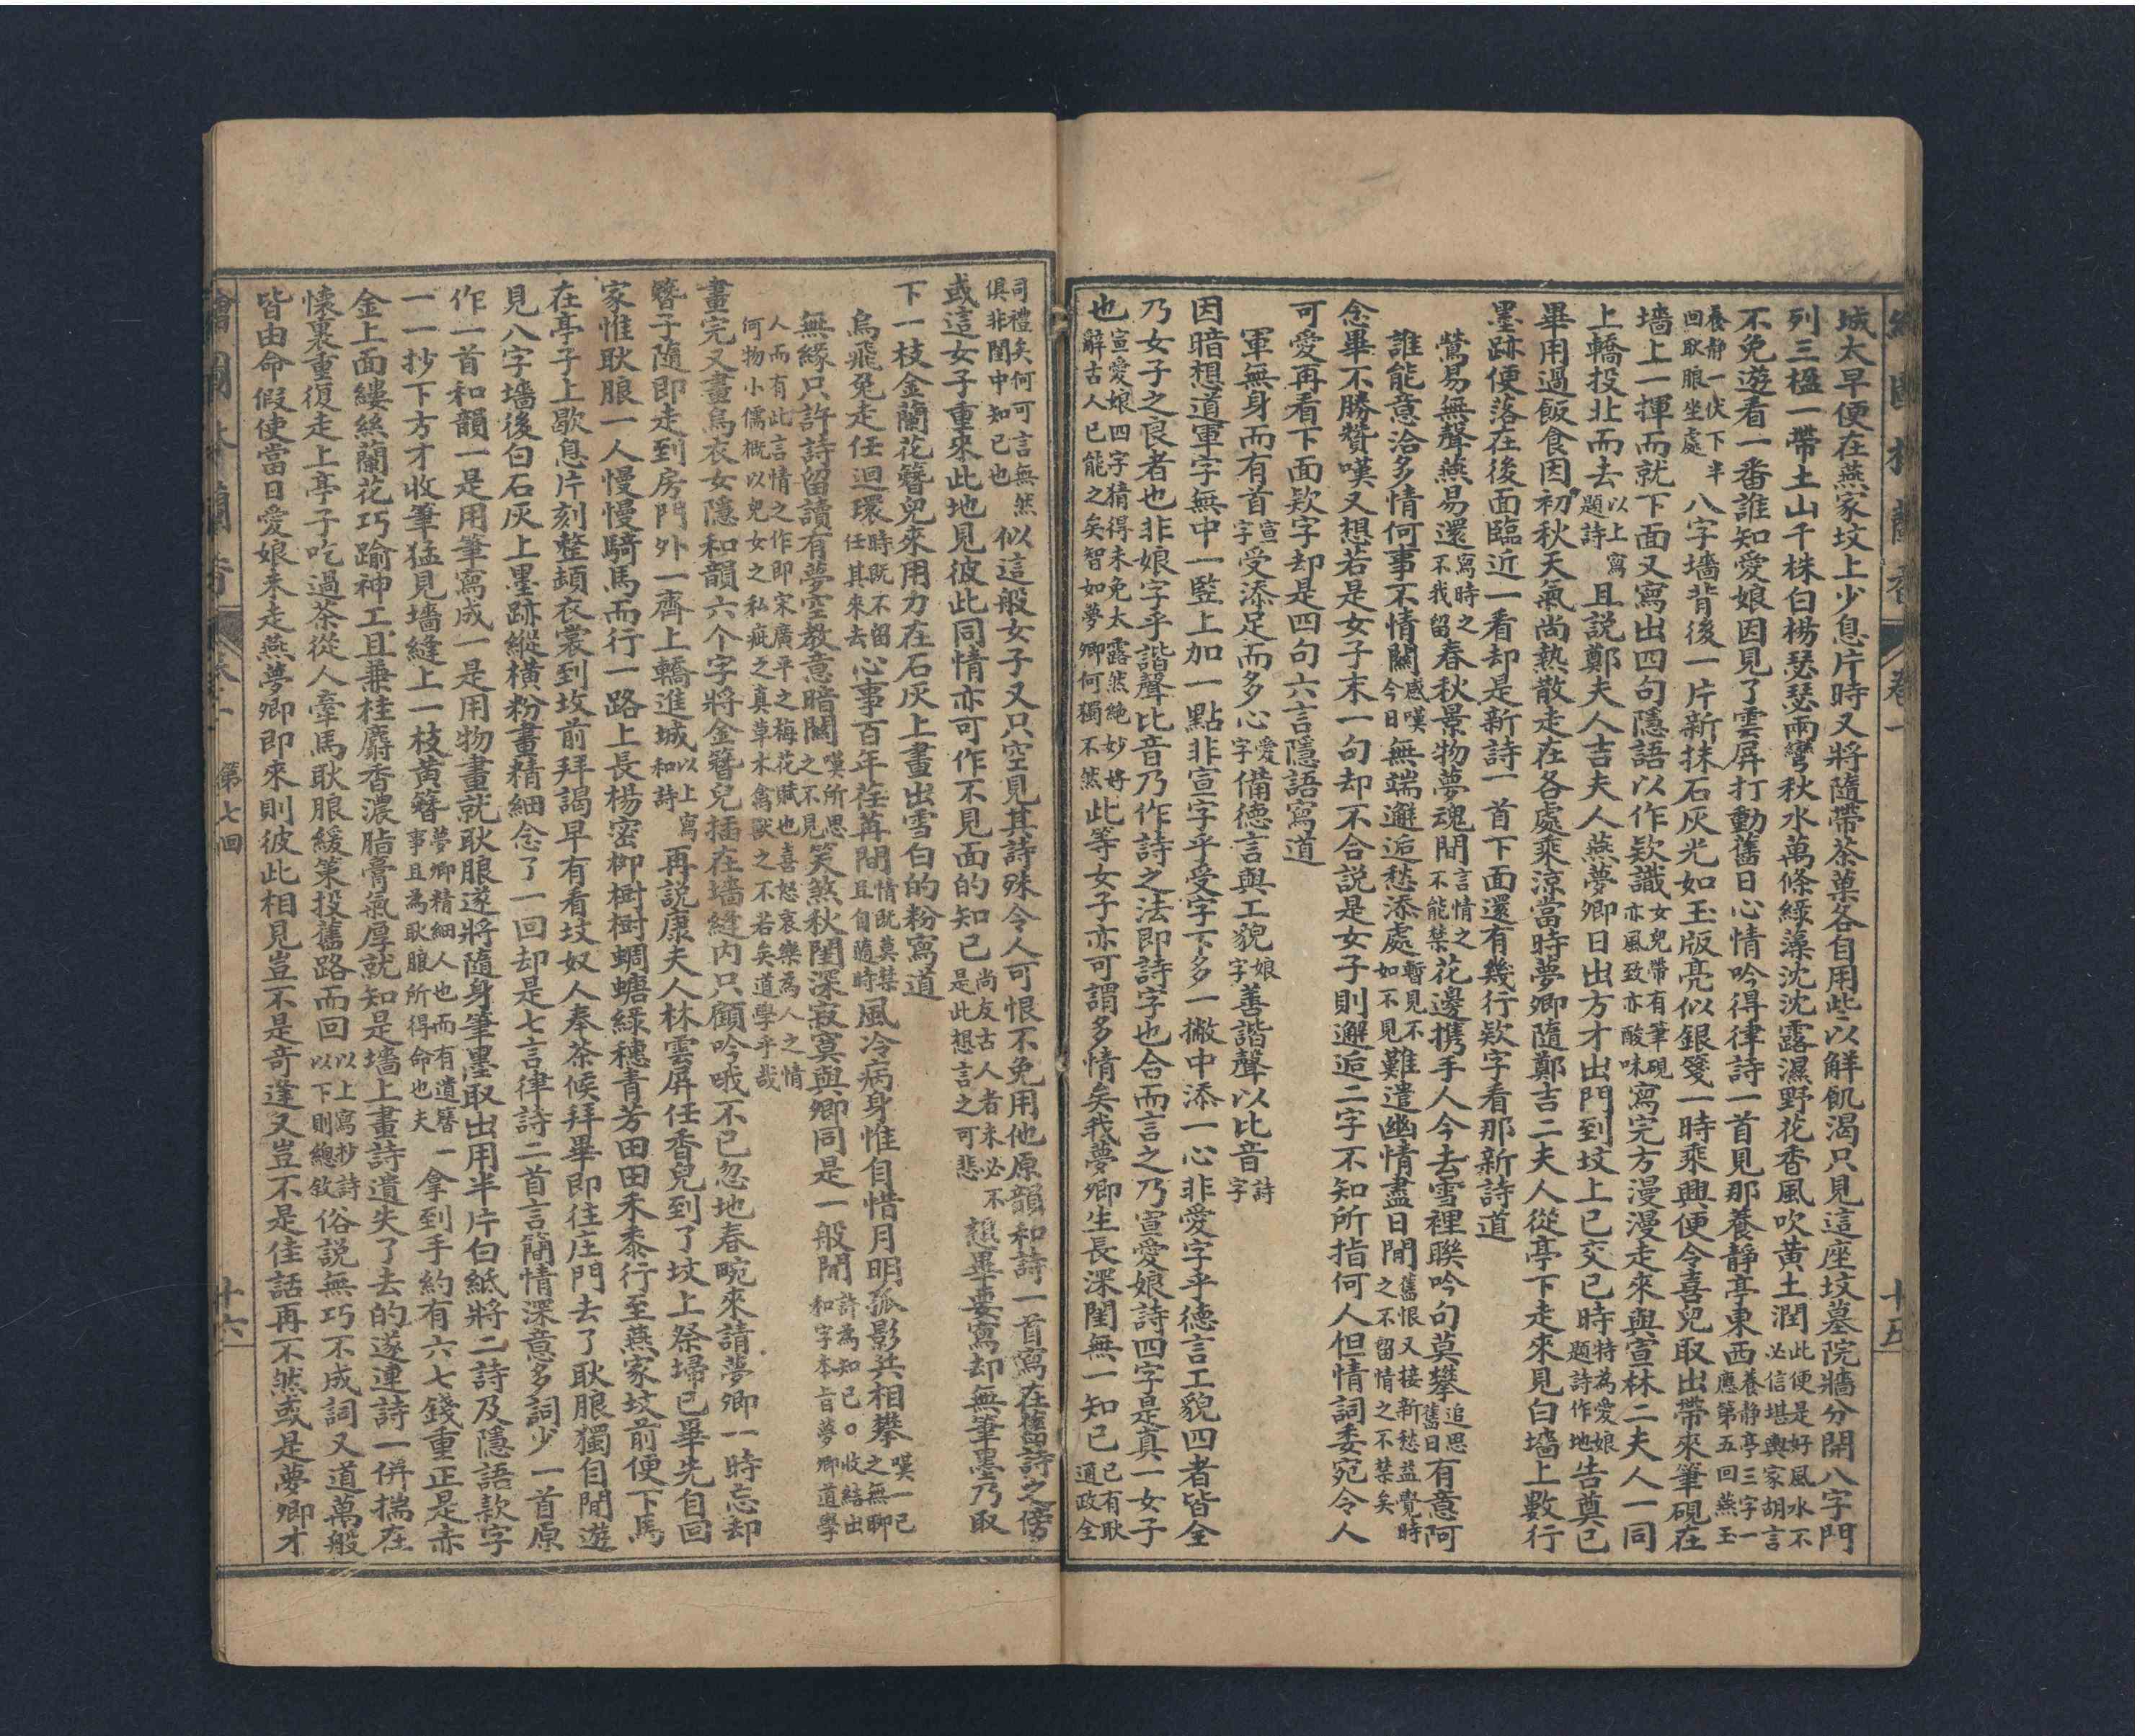 城太早便在燕家墳上少息片時又將隨帶茶菓各自用些以解飢渴只見這座墳墓院牆分開八字門
列三楹一帶土山千株白楊瑟瑟兩彎秋水萬條綠藻沈沈露濕野花香風吹黃土潤此便是好風水不必信堪輿家胡言
不免遊看一番誰知愛娘因見了雲屏打動舊日心情吟得律詩一首見那養靜亭東西養靜亭三字一應第五回燕玉
養靜一伏下半回耿朖坐處八字墻背後一片新抹石灰光如玉版亮似銀箋一時乘興便令喜兒取出帶來筆硯在
墻上一揮而就下面又寫出四句隱語以作欵識女兒帶有筆硯亦風致亦酸味寫完方漫漫走來與宣林二夫人一同
上轎投北而去以上寫題詩且説鄭夫人吉夫人燕夢卿日出方才出門到坟上已交巳時特為愛娘題詩作地告奠已
畢用過飯食因初秋天氣尚熱散走在各處乘涼當時夢卿隨鄭吉二夫人從亭下走來見白墻上數行
墨跡便落在後面臨近一看却是新詩一首下面還有幾行欵字看那新詩道
鶯易無聲燕易還寫時之不我留春秋景物夢魂間言情之不能禁花邊携手人今去雪裡聯吟句莫攀追思舊日有意阿
誰能意洽多情何事不情關感嘆今日無端邂逅愁添處暫見不如不見難遣幽情盡日閒舊恨又接新愁益覺時之不留情之不禁矣
念畢不勝贊嘆又想若是女子末一句却不合説是女子則邂逅二字不知所指何人但情詞委宛令人
可愛再看下面欵字却是四句六言隱語寫道
軍無身而有首宣字受添足而多心愛字備德言與工貌娘字善諧聲以比音詩字
因暗想道軍字無中一竪上加一點非宣字乎受字下多一撇中添一心非愛字乎德言工貌四者皆全
乃女子之良者也非娘字乎諧聲比音乃作詩之法即詩字也合而言之乃宣愛娘詩四字是真一女子
也宣愛娘四字猜得未免太露然絶妙好解古人已能之矣智如夢卿何獨不然此等女子亦可謂多情矣我夢卿生長深閨無一知已已有耿通政全
司禮矣何可言無然俱非閨中知已也似這般女子又只空見其詩殊令人可恨不免用他原韻和詩一首寫在舊詩之傍
或這女子重來此地見彼此同情亦可作不見面的知已尚友古人者未必不是此想言之可悲想畢要寫却無筆墨乃取
下一枝金蘭花簪兒來用力在石灰上畫出雪白的粉寫道
烏飛兔走任迴環時既不留任其來去心事百年荏苒間情既莫禁且自隨時風冷病身惟自惜月明孤影共相攀嘆一已之無聊
無緣只許詩留讀有夢空教意暗關嘆所思之不見笑煞秋閨深寂寞與卿同是一般閒詩為知已。收結出和字本旨夢卿道學
人而有此言情之作即宋廣平之梅花賦也喜怒哀樂為人之情何物小儒概以兒女之私疵之真草木禽獸之不若矣道學乎哉
畫完又畫烏衣女隱和韻六个字將金簪兒插在墻縫内只顧吟哦不已忽地春畹來請夢卿一時忘却
簪子隨即走到房門外一齊上轎進城以上寫和詩再説康夫人林雲屏任香兒到了坟上祭埽已畢先自回
家惟耿朖一人慢慢騎馬而行一路上長楊密柳樹樹蜩螗綠穗青芳田田禾黍行至燕家坟前便下馬
在亭子上歇息片刻整頓衣裳到坟前拜謁早有看坟奴人奉茶候拜畢即往庄門去了耿朖獨自閒遊
見八字墻後白石灰上墨跡縱橫粉畫精細念了一回却是七言律詩二首言簡情深意多詞少一首原
作一首和韻一是用筆寫成一是用物畫就耿朖遂將隨身筆墨取出用半片白紙將二詩及隱語款字
一一抄下方才收筆猛見墻縫上一枝黃簪夢卿精細人也而有遺簪事且為耿朖所得命也夫一拿到手約有六七錢重正是赤
金上面縷絲蘭花巧踰神工且兼桂麝香濃脂膏氣厚就知是墻上畫詩遺失了去的遂連詩一併揣在
懷裏重復走上亭子吃過茶從人牽馬耿朖緩策投舊路而回以上寫抄詩以下則總敘俗説無巧不成詞又道萬般
皆由命假使當日愛娘未走燕夢卿即來則彼此相見豈不是奇逢又豈不是佳話再不然或是夢卿才
卷一 十五
繪圖林蘭香 卷一 第七回 十六